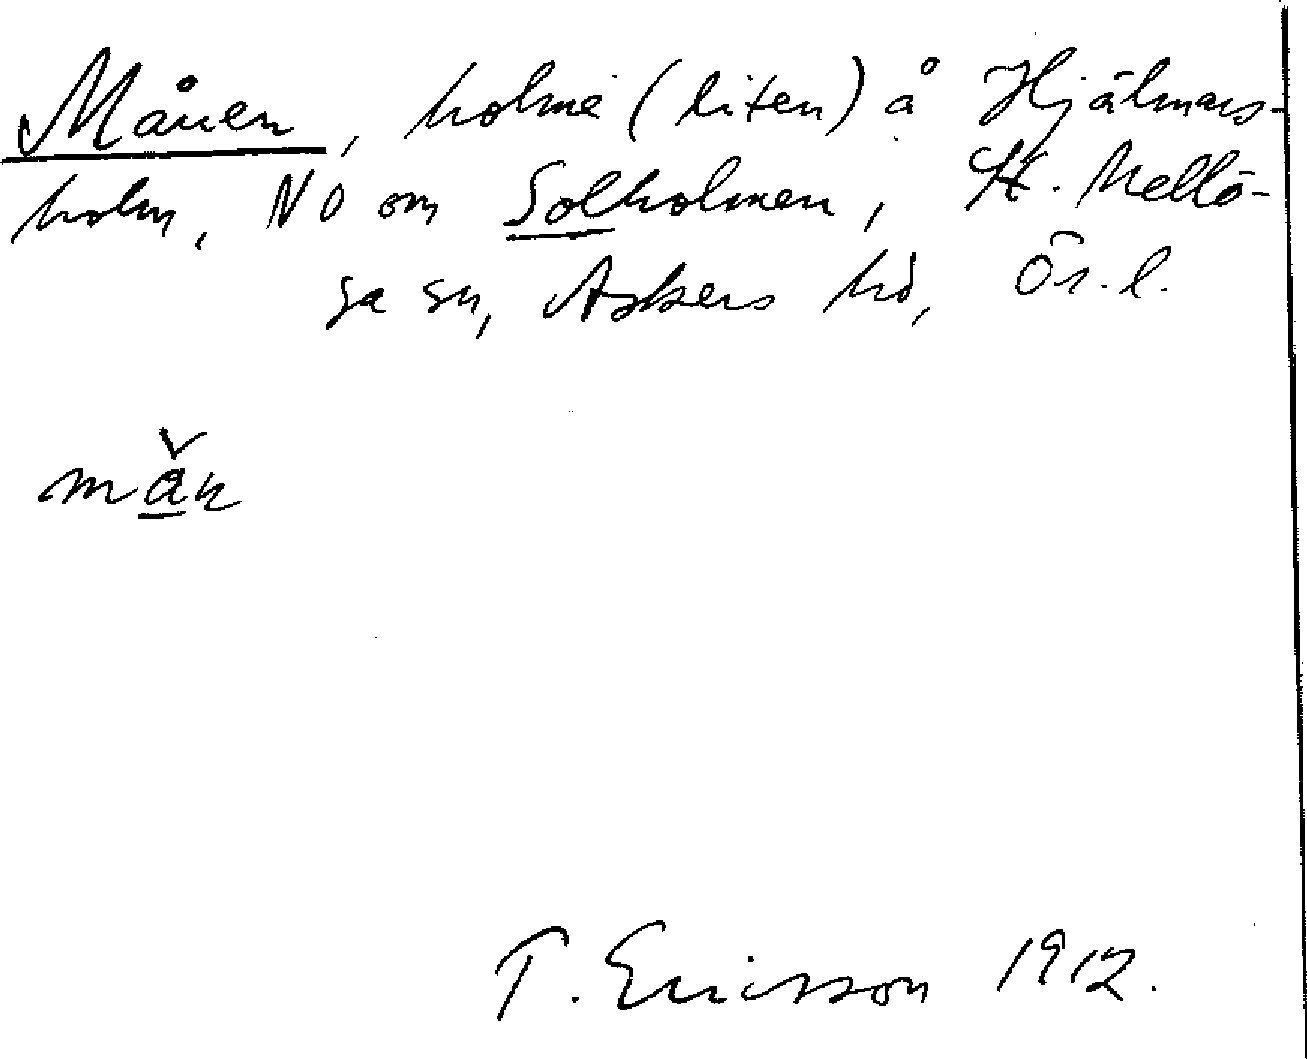 Månen, holme (liten) å Hjälmars-
holm, NO om Solholmen, St. Mellö-
sa sn, Askers hd, Ör. l.
mån
T. Ericsson 1912.